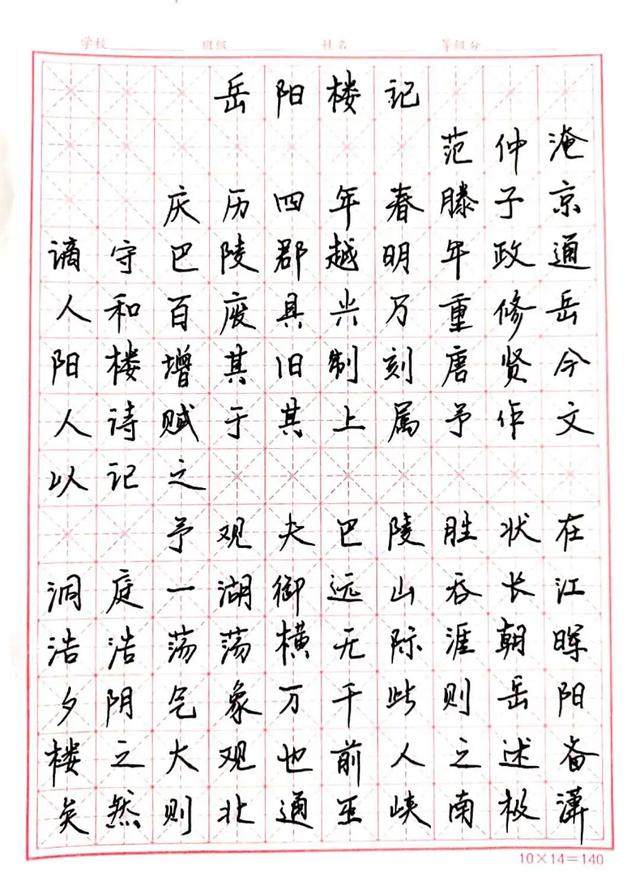 学校 班级 姓名 等级分
岳阳楼记
范仲淹
庆历四年春滕子京
谪守巴陵郡越明年政通
人和百废具兴乃重修岳
阳楼增其旧制刻唐贤今
人诗赋于其上属予作文
以记之
予观夫巴陵胜状在
洞庭一湖御远山吞长江
浩浩荡荡横无际涯朝晖
夕阴气象万千此则岳阳
楼之大观也前人之述备
矣然则北通巫峡南极潇
10×14=140